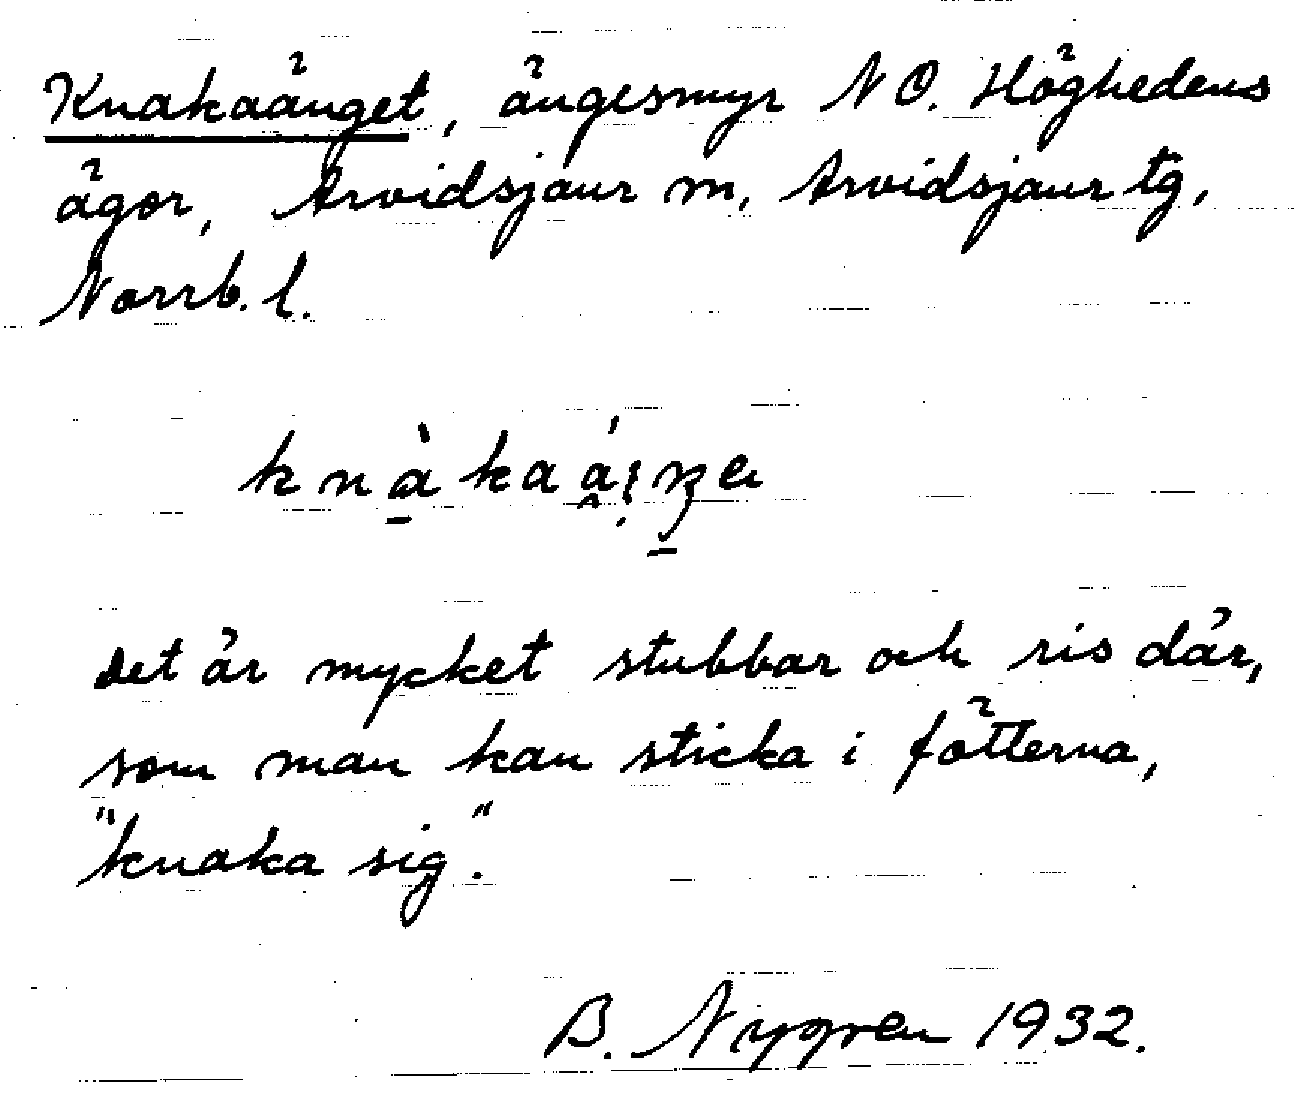 Knakaänget, ängesmyr N O. Höghedens
ägor, Arvidsjaur sn, Arvidsjaur tg,
Norrb. l.
Det är mycket stubbar och ris där,
som man kan sticka i fötterna,
"knaka sig".
B. Nygren 1932.